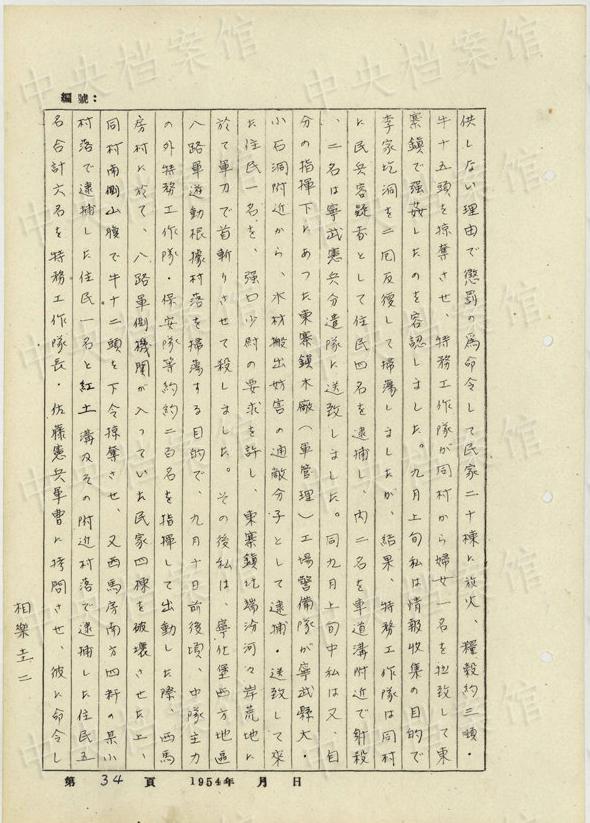 編號：
供しない理由で懲罰の為命令して民家二十棟に放火、糧穀約三頓・
牛十五頭を掠奪させ、特務工作隊が同村から婦女一名を拉致して東
寨鎮で强姦したのを容認しました。九月上旬私は情報收集の目的で
李家圪洞を二回反復して掃蕩しましたが、結果、特務工作隊は同村
に民兵容疑者として住民四名を逮捕し、内二名を車道溝附近で射殺
、二名は寧武憲兵分遣隊に送致しました。同九月上旬中私は又、自
分の指揮下にあった東寨鎮木廠（軍管理）工場警備隊が寧武縣大・
小石洞附近から、木材搬出妨害の通敵分子として逮捕・送致して来
た住民一名を、强口少尉の要求を許し、東寨鎮北端汾河々岸荒地に
於て軍刀で首斬りさせて殺しました。その後私は、寧化堡西方地區
八路軍遊動根據村落を掃蕩する目的で、九月十日前後頃、中隊主力
の外特務工作隊・保安隊等約二百名を指揮して出動した際、西馬
房村に於て、八路軍側機関が入っていた民家四棟を破壊させた上、
同村南側山腹で牛十二頭を下令掠奪させ、又西馬房南方四粁の某小
村落で逮捕した住民一名と紅土溝及その附近村落で逮捕した住民五
名合計六名を特務工作隊長・佐藤憲兵軍曹に拷問させ、彼に命令し
相樂圭二
第 34 頁 1954年 月 日
中央档案馆